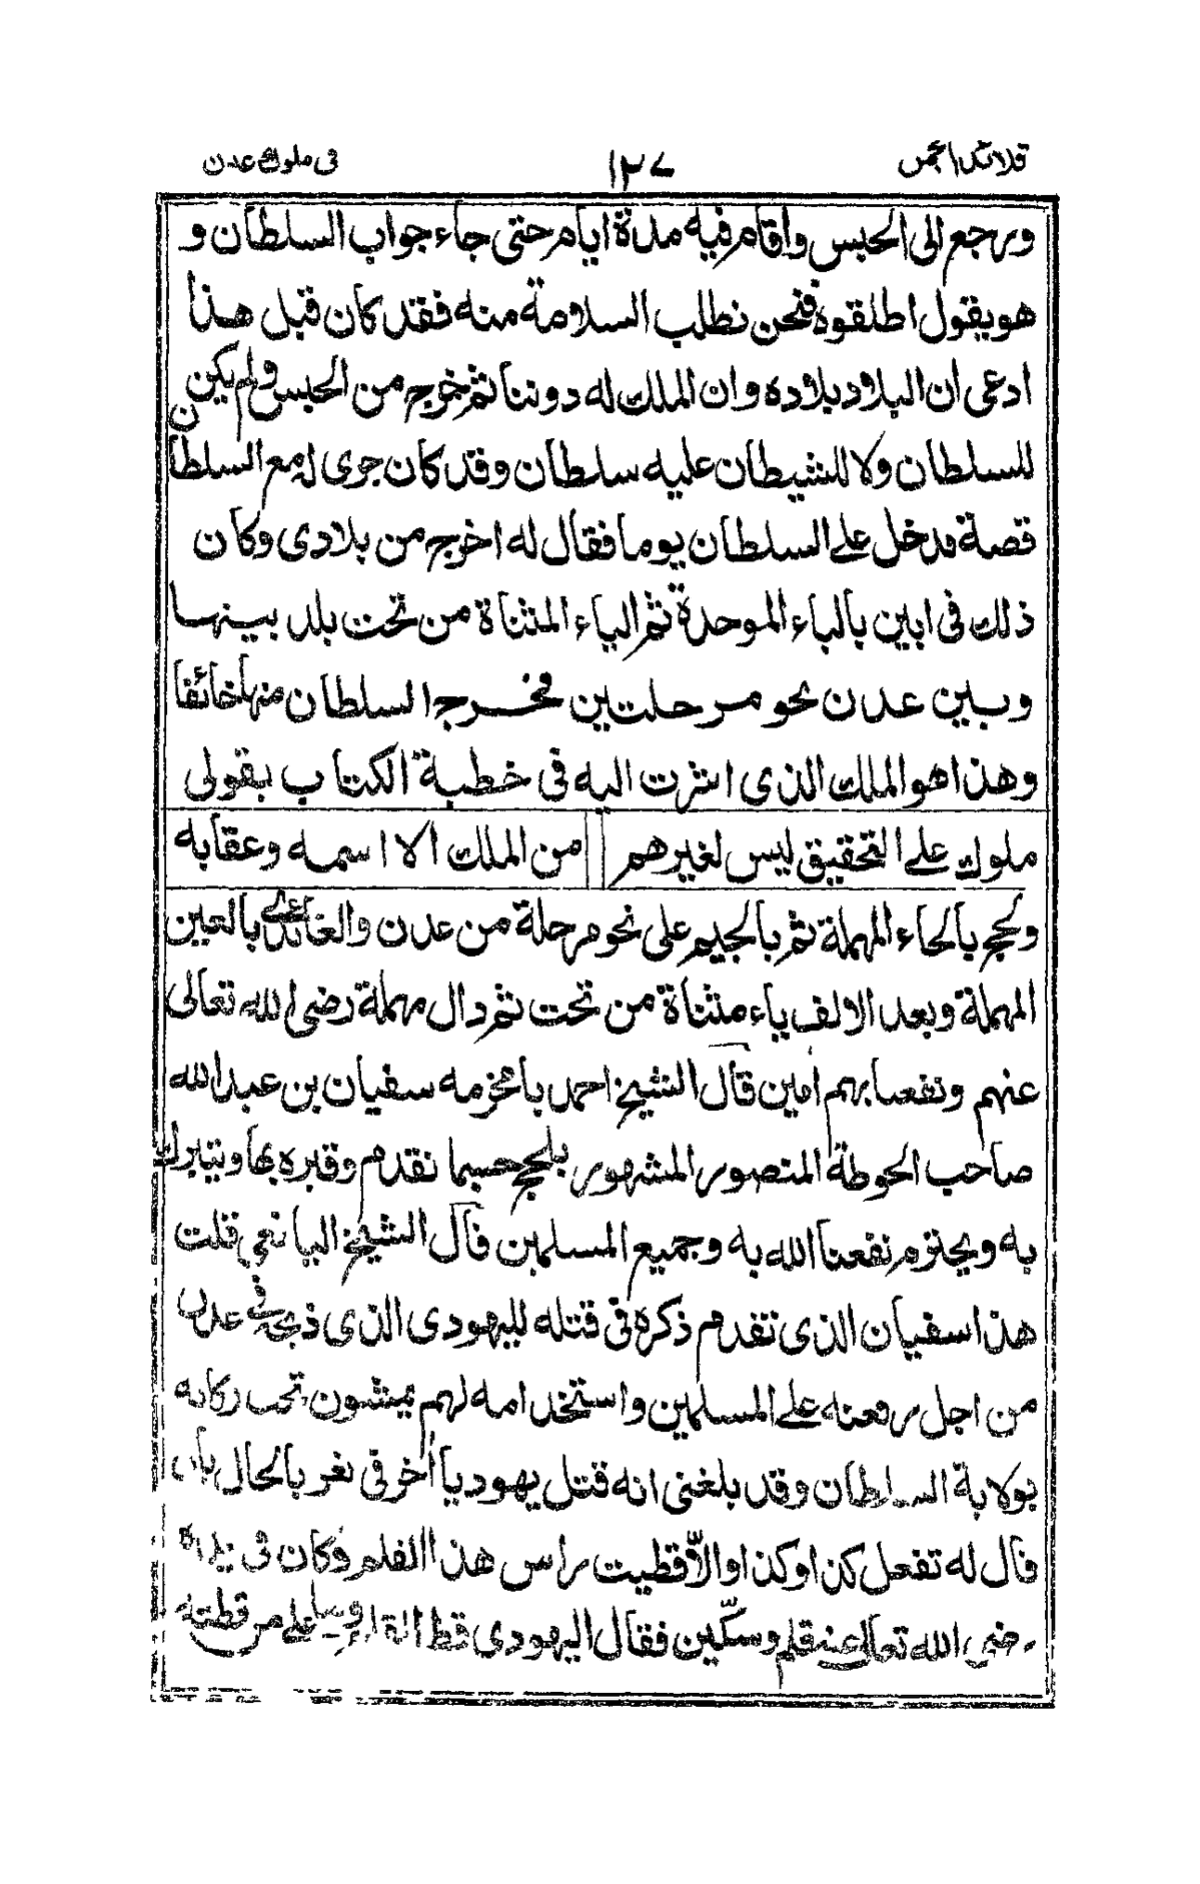 قلائد الجمن ١٢٧ فى ملوك عدن
ورجع الى الحبس واقام فيه مدة ايام حتى جاء جواب السلطان و
هو يقول اطلقوه فنحن نطلب السلامة منه فقد كان قبل هذا
ادعى ان البلاد بلاده وان الملك له دوننا ثم خرج من الحبس ولم يكن
للسلطان ولا للشيطان عليه سلطان وقد كان جرى له مع السلطان
قصة قد خل على السلطان يوما فقال له اخرج من بلادى وكان
ذلك فى ابين بالباء الموحدة ثم الياء المثناة من تحت بلد بينها
وبين عدن نحو مرحلتين فخرج السلطان منها خائفا
وهذا هو الملك الذى اشرت اليه فى خطبة الكتاب بقولى
ملوك على التحقيق ليس لغيرهم من الملك الا اسمه وعقابه
ولحج بالحاء المهملة ثم بالجيم على نحو مرحلة من عدن والعائدى بالعين
المهملة وبعد الالف ياء مثناة من تحت ثم دال مهملة رضى الله تعالى
عنهم ونفعنا بهم امين قال الشيخ احمد بامخرمه سفيان بن عبد الله
صاحب الحوطة المنصور المشهور بلحج حسبما تقدم وقبره بها ويتبرك
به ويحترم نفعنا الله به وجميع المسلمين قال الشيخ اليافعي قلت
هذا سفيان الذى تقدم ذكره فى قتله لليهودى الذى ذبحه فى عدن
من اجل رفعته على المسلمين واستخدامه لهم يمشون تحت ركابه
بولاية السلطان وقد بلغنى انه قتل يهوديا آخر فى ثغر بالحال بان
قال له تفعل كذا وكذا والّا قطيت راس هذا القلم وكان فى يده
رضى الله تعالى عنه قلم وسكّين فقال اليهودى قط القلم من قطته